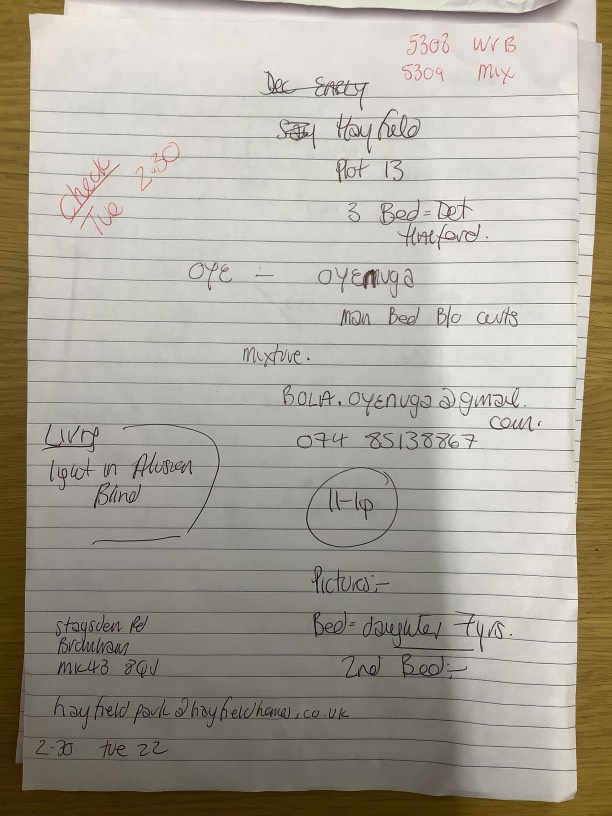 5308 WVB
5309 MIX
Dec EARLY
Hayfield
Plot 13
Check
Tue 2.30
3 Bed = Det
Halford.
OYE - OYENUGA
man Bed B/o curts
mixture.
BOLA.OYENUGA@gmail.
com.
074 85138867
Living
light in Alusion
Blind
11-1p
Pictures:-
Bed = daughter 7yrs.
2nd Bed:-
Stagsden Rd
Bromham
MK43 8QJ
hayfieldpark@hayfieldhomes.co.uk
2-30 tue 22